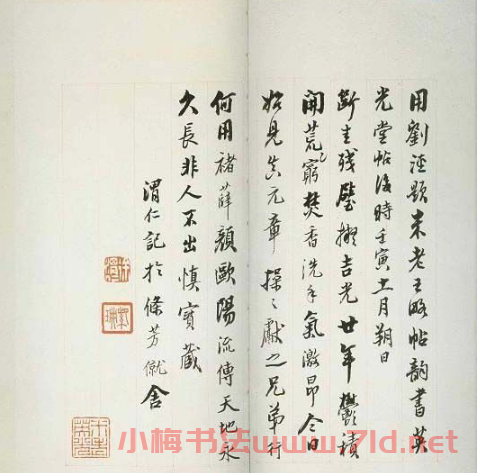 用劉涇題米老王略帖韵書英
光堂帖後時壬寅十一月朔日
斷圭殘璧掇吉光廿年鬱積
開荒窮焚香洗手氣激昂今日
始見真元章操之獻之兄弟行
何用褚薛顏歐陽流傳天地永
久長非人不出慎寶藏
渭仁記於絛芳僦舍
小梅书法www.7ld.net